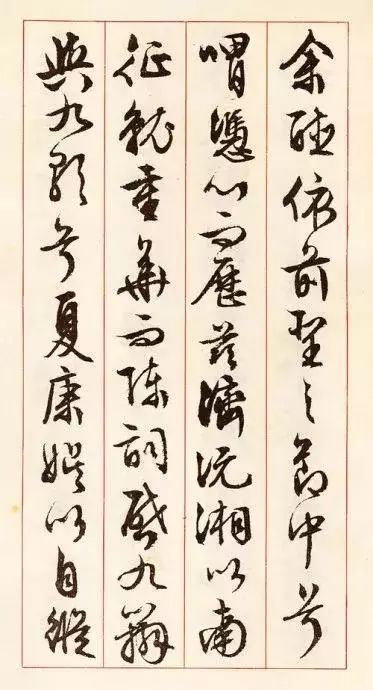 余依前聖之節中兮
喟憑心而歷茲濟沅湘以南
征就重華而陳詞啟九辯
與九歌兮夏康娛以自縱